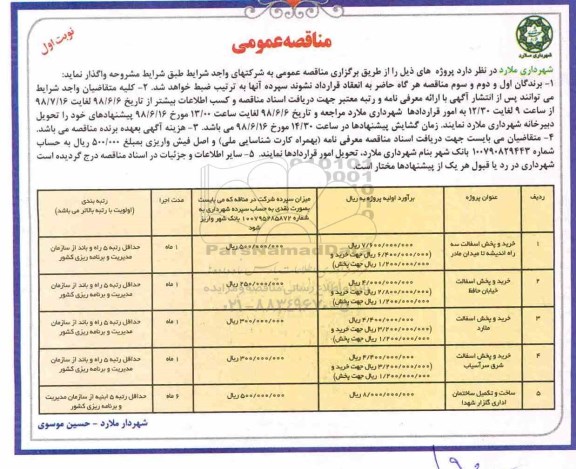 نوبت اول
مناقصه عمومی
شهرداری ملارد
شهرداری ملارد در نظر دارد پروژه های ذیل را از طریق برگزاری مناقصه عمومی به شرکتهای واجد شرایط طبق شرایط مشروحه واگذار نماید:
۱- برندگان اول و دوم و سوم مناقصه هر گاه حاضر به انعقاد قرارداد نشوند سپرده آنها به ترتیب ضبط خواهد شد. ۲- کلیه متقاضیان واجد شرایط
می توانند پس از انتشار آگهی با ارائه معرفی نامه و رتبه معتبر جهت دریافت اسناد مناقصه و کسب اطلاعات بیشتر از تاریخ ۹۸/۶/۶ لغایت ۹۸/۷/۱۶
از ساعت ۹ لغایت ۱۲/۳۰ به امور قراردادها شهرداری ملارد مراجعه و تاریخ ۹۸/۶/۶ لغایت ساعت ۱۳/۰۰ مورخ ۹۸/۶/۱۶ پیشنهادهای خود را تحویل
دبیرخانه شهرداری ملارد نمایند. زمان گشایش پیشنهادها در ساعت ۱۴/۳۰ مورخ ۹۸/۶/۱۶ می باشد. ۳- هزینه آگهی بعهده برنده مناقصه می باشد.
۴- متقاضیان می بایست جهت دریافت اسناد مناقصه معرفی نامه (بهمراه کارت شناسایی ملی) و اصل فیش واریزی بمبلغ ۵۰۰/۰۰۰ ریال به حساب
شماره ۱۰۰۷۹۰۸۲۹۴۴۳ بانک شهر بنام شهرداری ملارد، تحویل امور قراردادها نمایند. ۵- سایر اطلاعات و جزئیات در اسناد مناقصه درج گردیده است
شهرداری در رد یا قبول هر یک از پیشنهادها مختار است.
ردیف عنوان پروژه برآورد اولیه پروژه به ریال میزان سپرده شرکت در مناقصه که می بایست بصورت نقدی به حساب سپرده شهرداری به شماره ۱۰۰۷۹۵۲۸۵۸۷۲ بانک شهر واریز شود مدت اجرا رتبه بندی (اولویت با رتبه بالاتر می باشد)
۱ خرید و پخش آسفالت سه راه اندیشه تا میدان مادر ۷/۶۰۰/۰۰۰/۰۰۰ ریال (۶/۴۰۰/۰۰۰/۰۰۰ ریال جهت خرید و ۱/۲۰۰/۰۰۰/۰۰۰ ریال جهت پخش) ۵۰۰/۰۰۰/۰۰۰ ریال ۱ ماه حداقل رتبه ۵ راه و باند از سازمان مدیریت و برنامه ریزی کشور
۲ خرید و پخش آسفالت خیابان حافظ ۴/۰۰۰/۰۰۰/۰۰۰ ریال (۲/۸۰۰/۰۰۰/۰۰۰ ریال جهت خرید و ۱/۲۰۰/۰۰۰/۰۰۰ ریال جهت پخش) ۲۵۰/۰۰۰/۰۰۰ ریال ۱ ماه حداقل رتبه ۵ راه و باند از سازمان مدیریت و برنامه ریزی کشور
۳ خرید و پخش آسفالت ملارد ۴/۴۰۰/۰۰۰/۰۰۰ ریال (۳/۲۰۰/۰۰۰/۰۰۰ ریال جهت خرید و ۱/۲۰۰/۰۰۰/۰۰۰ ریال جهت پخش) ۳۰۰/۰۰۰/۰۰۰ ریال ۱ ماه حداقل رتبه ۵ راه و باند از سازمان مدیریت و برنامه ریزی کشور
۴ خرید و پخش آسفالت شرق سرآسیاب ۴/۴۰۰/۰۰۰/۰۰۰ ریال (۳/۲۰۰/۰۰۰/۰۰۰ ریال جهت خرید و ۱/۲۰۰/۰۰۰/۰۰۰ ریال جهت پخش) ۳۰۰/۰۰۰/۰۰۰ ریال ۱ ماه حداقل رتبه ۵ راه و باند از سازمان مدیریت و برنامه ریزی کشور
۵ ساخت و تکمیل ساختمان اداری گلزار شهدا ۸/۰۰۰/۰۰۰/۰۰۰ ریال ۵۰۰/۰۰۰/۰۰۰ ریال ۶ ماه حداقل رتبه ۵ ابنیه از سازمان مدیریت و برنامه ریزی کشور
ParsNamadData
۰۲۱-۸۸۳۴۹۶۷۰
شهردار ملارد - حسین موسوی